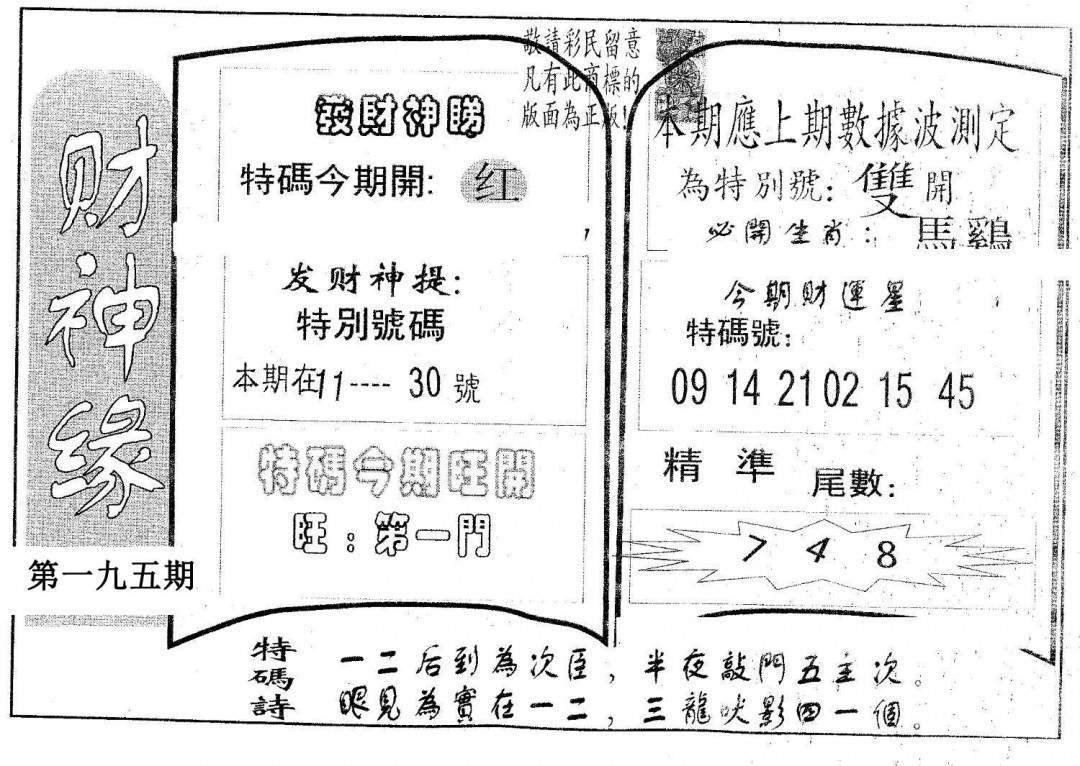 财神缘
第一九五期
敬請彩民留意
凡有此商標的
版面為正版!
發財神賜
特碼今期開: 红
发财神提:
特別號碼
本期在11---- 30 號
特碼今期旺開
旺：第一門
本期應上期數據波測定
為特別號: 雙 開
必開生肖: 馬 鷄
今期財運星
特碼號:
09 14 21 02 15 45
精 準 尾數:
7 4 8
特碼詩
一二后到為次臣，半夜敲門五主次。
眼見為實在一二，三龍吠影四一個。